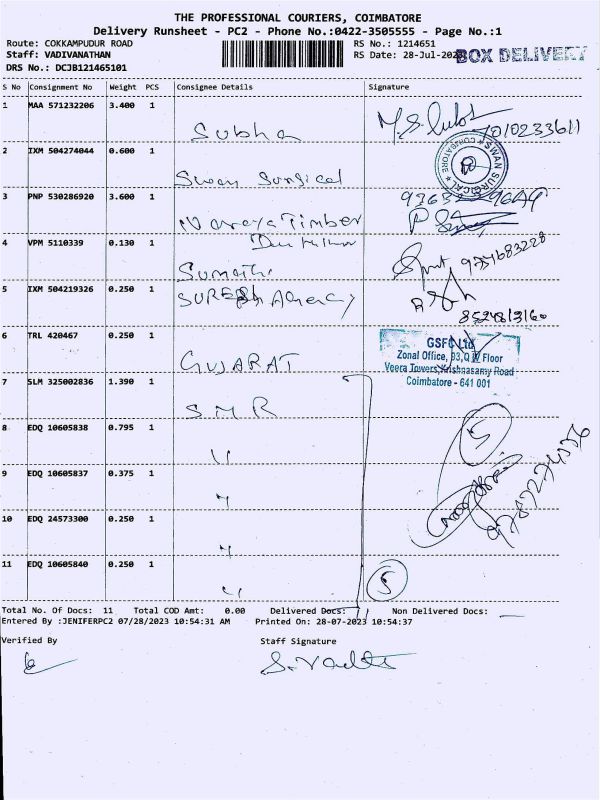 THE PROFESSIONAL COURIERS, COIMBATORE
Delivery Runsheet - PC2 - Phone No.:0422-3505555 - Page No.:1
Route: COKKAMPUDUR ROAD
Staff: VADIVANATHAN
DRS No.: DCJB121465101
RS No.: 1214651
RS Date: 28-Jul-2023
BOX DELIVERY
S No Consignment No Weight PCS Consignee Details Signature
1 MAA 571232206 3.400 1 Subha 7010233611
2 IXM 504274044 0.600 1 Swan Surgical
SWAN SURGICAL COIMBATORE
3 PNP 530286920 3.600 1 Timber
4 VPM 5110339 0.130 1 Sumathi 9751683228
5 IXM 504219326 0.250 1 SURESH Agency
6 TRL 420467 0.250 1 GUJARAT
GSFC Ltd
Zonal Office, 93, Floor
Veera Towers, Krishnasamy Road
Coimbatore - 641 001
7 SLM 325002836 1.390 1 SMR
8 EDQ 10605838 0.795 1 "
9 EDQ 10605837 0.375 1 "
10 EDQ 24573300 0.250 1 "
11 EDQ 10605840 0.250 1 "
5
5
Total No. Of Docs: 11 Total COD Amt: 0.00 Delivered Docs: 11 Non Delivered Docs: —
Entered By :JENIFERPC2 07/28/2023 10:54:31 AM Printed On: 28-07-2023 10:54:37
Verified By Staff Signature